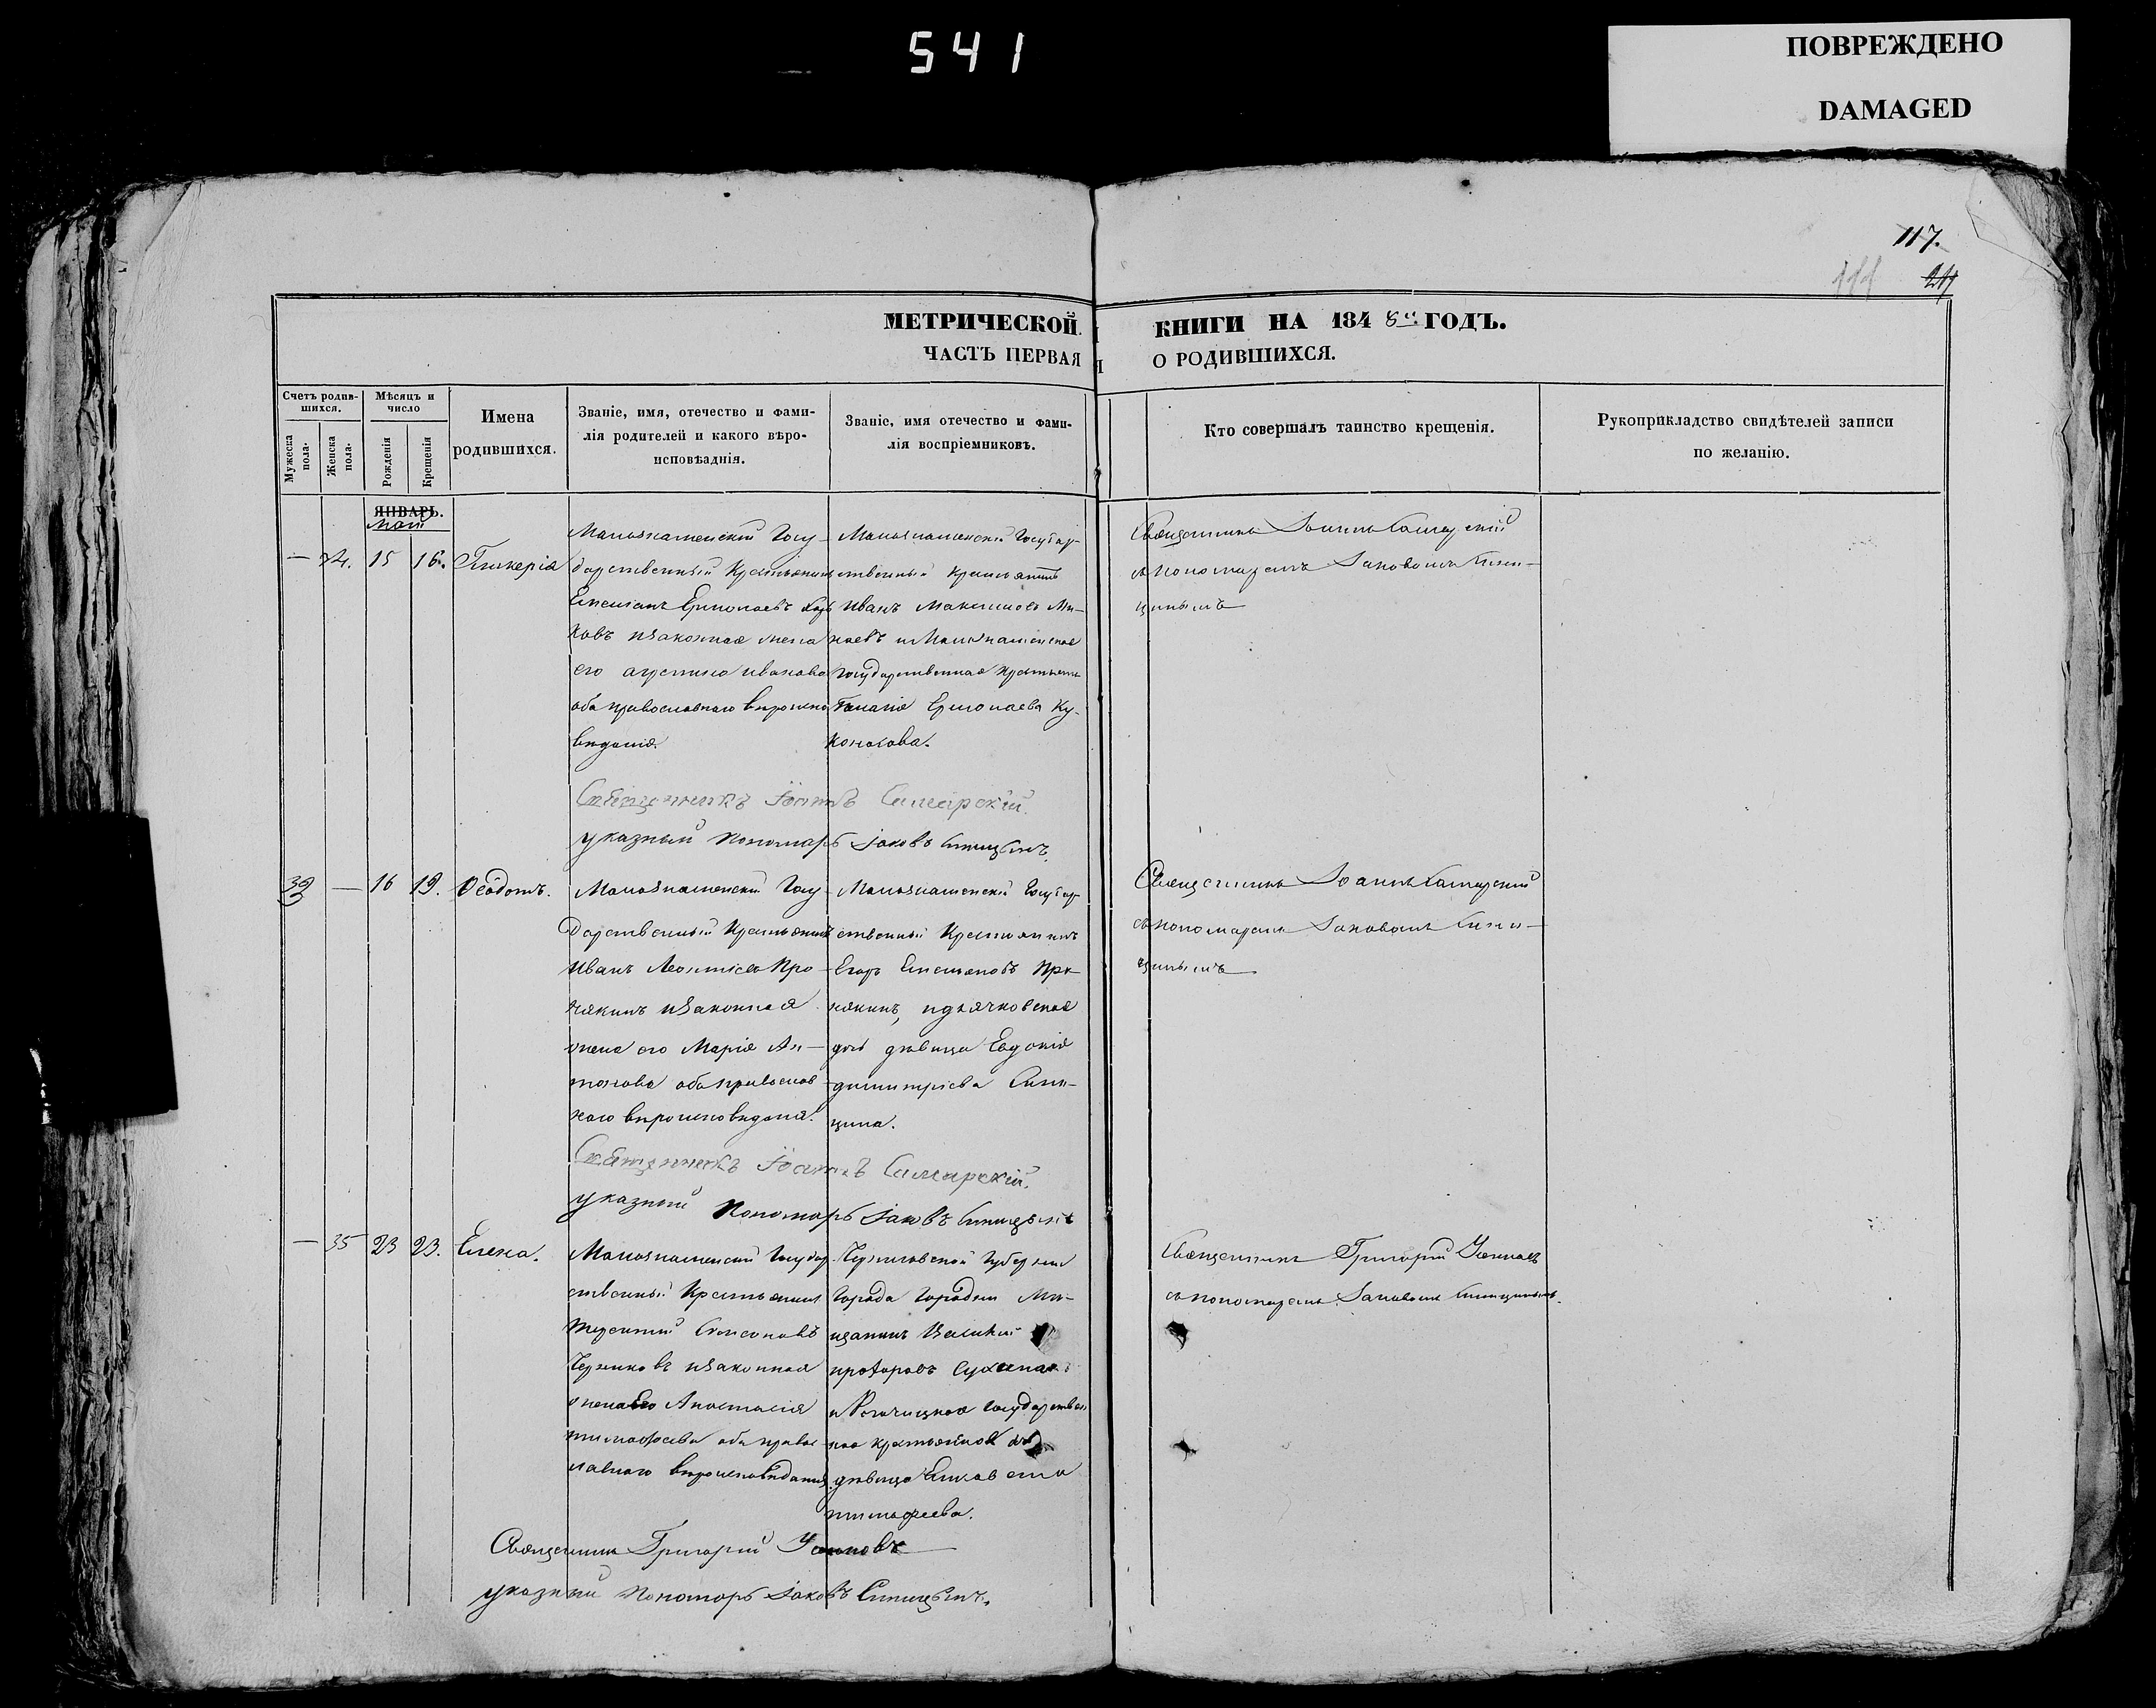 541
ПОВРЕЖДЕНО
DAMAGED
117.
МЕТРИЧЕСКОЙ КНИГИ НА 1848й ГОДЪ.
ЧАСТЬ ПЕРВАЯ О РОДИВШИХСЯ.
Счетъ родив-
шихся.
Мужеска
пола.
Женска
пола.
Мѣсяцъ и
число
Рожденія
Крещенія
Имена
родившихся.
Званіе, имя, отечество и фами-
лія родителей и какого вѣро-
исповѣаднія.
Званіе, имя отечество и фами-
лія воспріемниковъ.
Кто совершалъ таинство крещенія.
Рукоприкладство свидѣтелей записи
по желанію.
ЯНВАРЬ.
Маій
— 34. 15 16. Гликерія
Малознаменскій Госу-
дарственный Крестьянинъ
Емеліанъ Ермолаевъ
ковъ и законная жена
его иванова
оба православнаго вѣроиспо
вѣданія.
Малознаменскій Государ-
ственный Крестьянинъ
Иванъ Максимовъ Ми-
наевъ и Малознаменская
Государственная Крестьян
Ермолаева Ку-
коносова.
Священникъ Іоаннъ Самарскій
съ пономаремъ Іаковомъ Сини-
цинымъ
Священникъ Іоаннъ Самарскій.
указный Пономарь Іаковъ Синицынъ.
39 — 16 19. Ѳеодотъ.
Малознаменскій Госу-
дарственный Крестьянинъ
Иванъ Леонтіевъ Про-
някинъ и законная
жена его Марія Ан-
тонова оба православ-
наго вѣроисповѣданія.
Малознаменскій Государ-
ственный Крестьянинъ
Егоръ Емельяновъ Про-
някинъ, и дьячковская
дочь дѣвица Евдокія
димитріева Сини-
цина.
Священникъ Іоаннъ Самарскій
съ пономаремъ Іаковомъ Сини-
цинымъ
Священникъ Іоаннъ Самарскій.
указный Пономарь Іаковъ Синицынъ
— 35 23 23. Елена.
Малознаменскій Государ-
ственный Крестьянинъ
Терентій
и законная
жена его Анастасія
тимофѣева оба правос-
лавнаго вѣроисповѣданія
Черниговской Губерніи
Города Городни Мѣ-
щанинъ Василій
прохоровъ
и Государствен
ная крестьянская
дѣвица Елисавета
тимофѣева.
Священникъ Григорій
съ пономаремъ Іаковомъ Синицинымъ.
Священникъ Григорій
указный Пономарь Іаковъ Синицынъ.